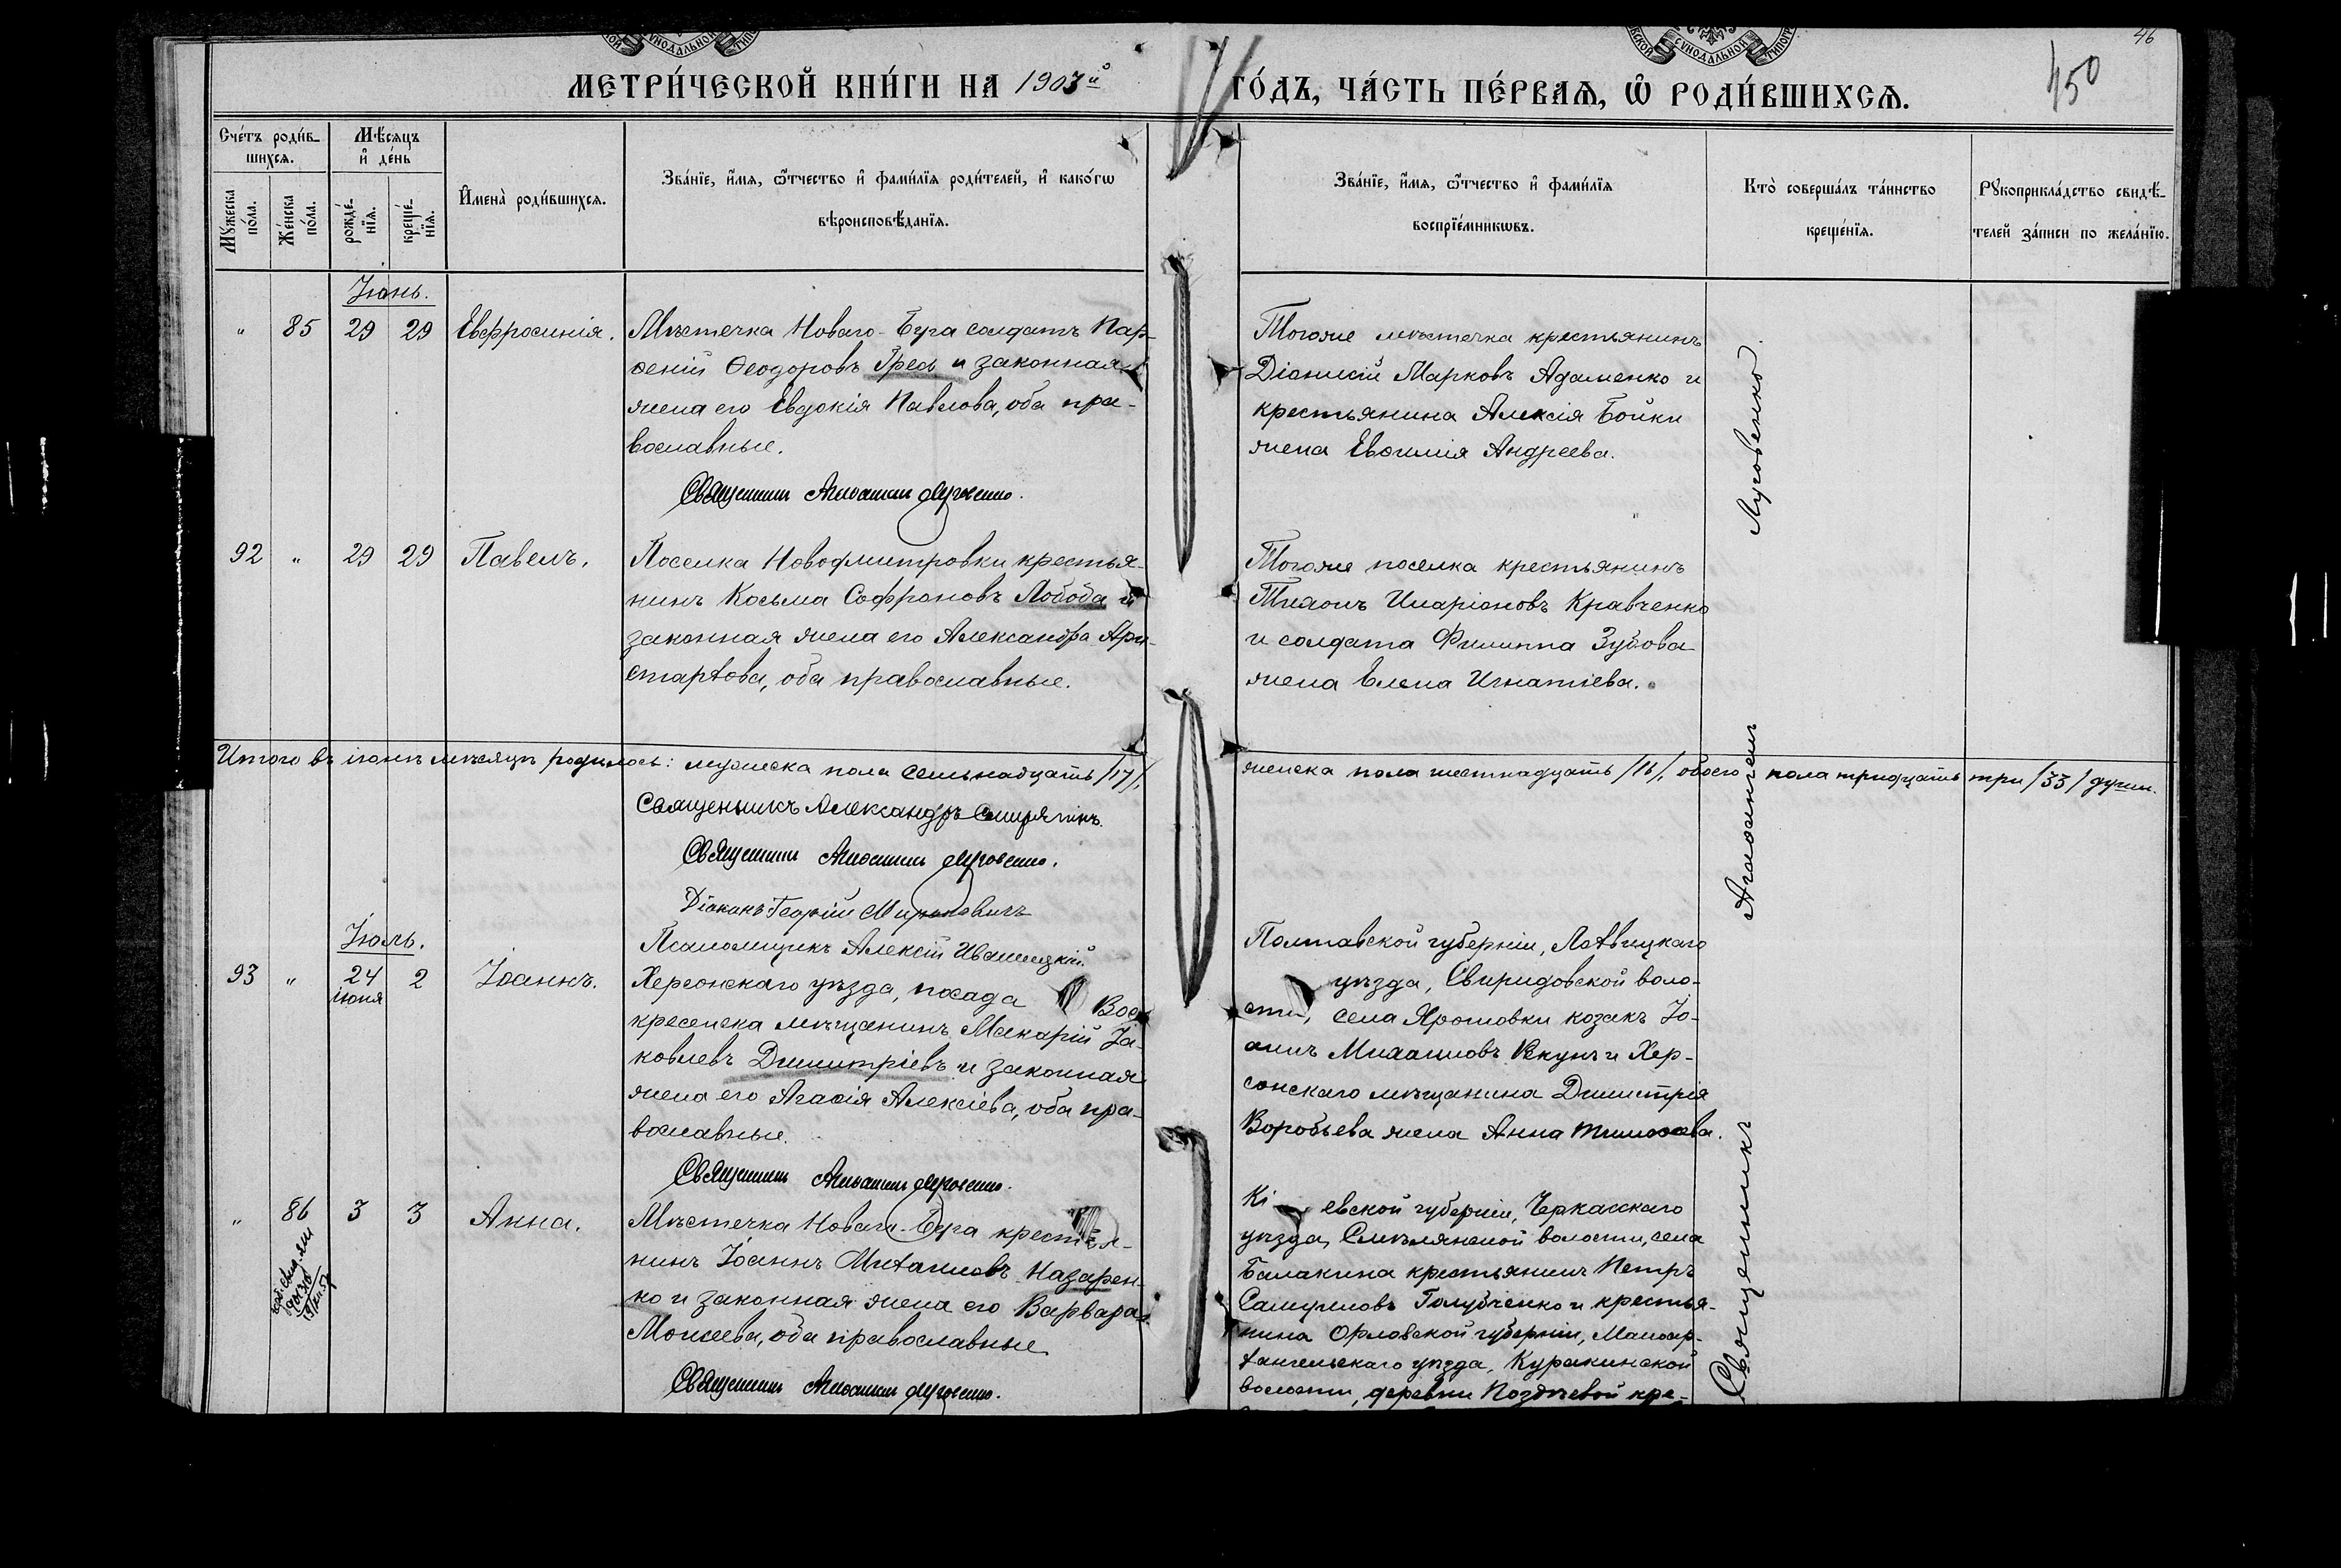 46
450
МЕТРИ́ЧЕСКОЙ КНИ́ГИ НА 1903й
ГО́ДЪ, ЧА́СТЬ ПЕ́РВАѦ, Ѡ РОДИ́ВШИХСѦ.
Сче́тъ роди́в-
шихсѧ.
Мѣ́сѧцъ
и҆ де́нь
Мꙋ́жеска
по́ла.
Же́нска
по́ла.
рожде́-
нїѧ.
креще́-
нїѧ.
И҆мена̀ роди́вшихсѧ.
Зва́нїе, и҆́мѧ, ѻ҆́тчество и҆ фами́лїѧ роди́телей, и҆ како́гѡ
вѣроисповѣ́данїѧ.
Зва́нїе, и҆́мѧ, ѻ҆́тчество и҆ фами́лїѧ
воспрїе́мникѡвъ.
Кто̀ соверша́лъ та́инство
креще́нїѧ.
Рꙋкоприкла́дство свидѣ́-
телей за́писи по жела́нїю.
Іюнь.
" 85 29 29 Евфросинія.
Мѣстечка Новаго-Буга солдатъ Пар-
ѳеній Ѳеодоровъ Гресь и законная
жена его Евдокія Павлова, оба пра-
вославные.
Священникъ Аѳанасій Луговенко.
Тогоже мѣстечка крестьянинъ
Діонисій Марковъ Адаменко и
крестьянина Алексія Бойки
жена Евѳимія Андреева.
92 " 29 29 Павелъ.
Поселка Новодмитровки крестья-
нинъ Косьма Софроновъ Лобода и
законная жена его Александра Ари-
стархова, оба православные.
Тогоже поселка крестьянинъ
Тихонъ Иларіоновъ Кравченко
и солдата Филиппа Зубова
жена Елена Игнатіева.
Итого въ іюнѣ мѣсяцѣ родилось: мужеска пола семьнадцать /17/,
женска пола шестнадцать /16/, обоего пола тридцать три /33/ души.
Священникъ Александръ Смирягинъ.
Священникъ Луговенко.
Діаконъ Георгій Мироновичъ
Псаломщикъ Алексій Иваницкій.
Іюль.
93 " 24 іюня 2 Іоаннъ.
Херсонскаго уѣзда, посада Вос-
кресенска мѣщанинъ Макарій Іа-
ковлевъ Димитріевъ и законная
жена его Агаѳія Алексіева, оба пра-
вославные.
Священникъ Луговенко.
Полтавской губерніи, Лохвицкаго
уѣзда, Свиридовской воло-
сти, села Яропловки козакъ Іо-
аннъ Михаиловъ и Хер-
сонскаго мѣщанина Димитрія
Воробьева жена Анна Тимоѳеева.
" 86 3 3 Анна.
Мѣстечка Новаго-Буга крестья-
нинъ Іоаннъ Михаиловъ Назарен-
ко и законная жена его Варвара
Моисеева, оба православные
Священникъ Луговенко.
Кі евской губерніи, Черкасскаго
уѣзда, Смѣлянской волости, села
Балакина крестьянинъ Петръ
Самуиловъ Голубченко и крестья-
нина Орловской губерніи, Малоар-
хангельскаго уѣзда, Куракинской
волости, деревни Поздѣевой кре-
Священникъ Луговенко.